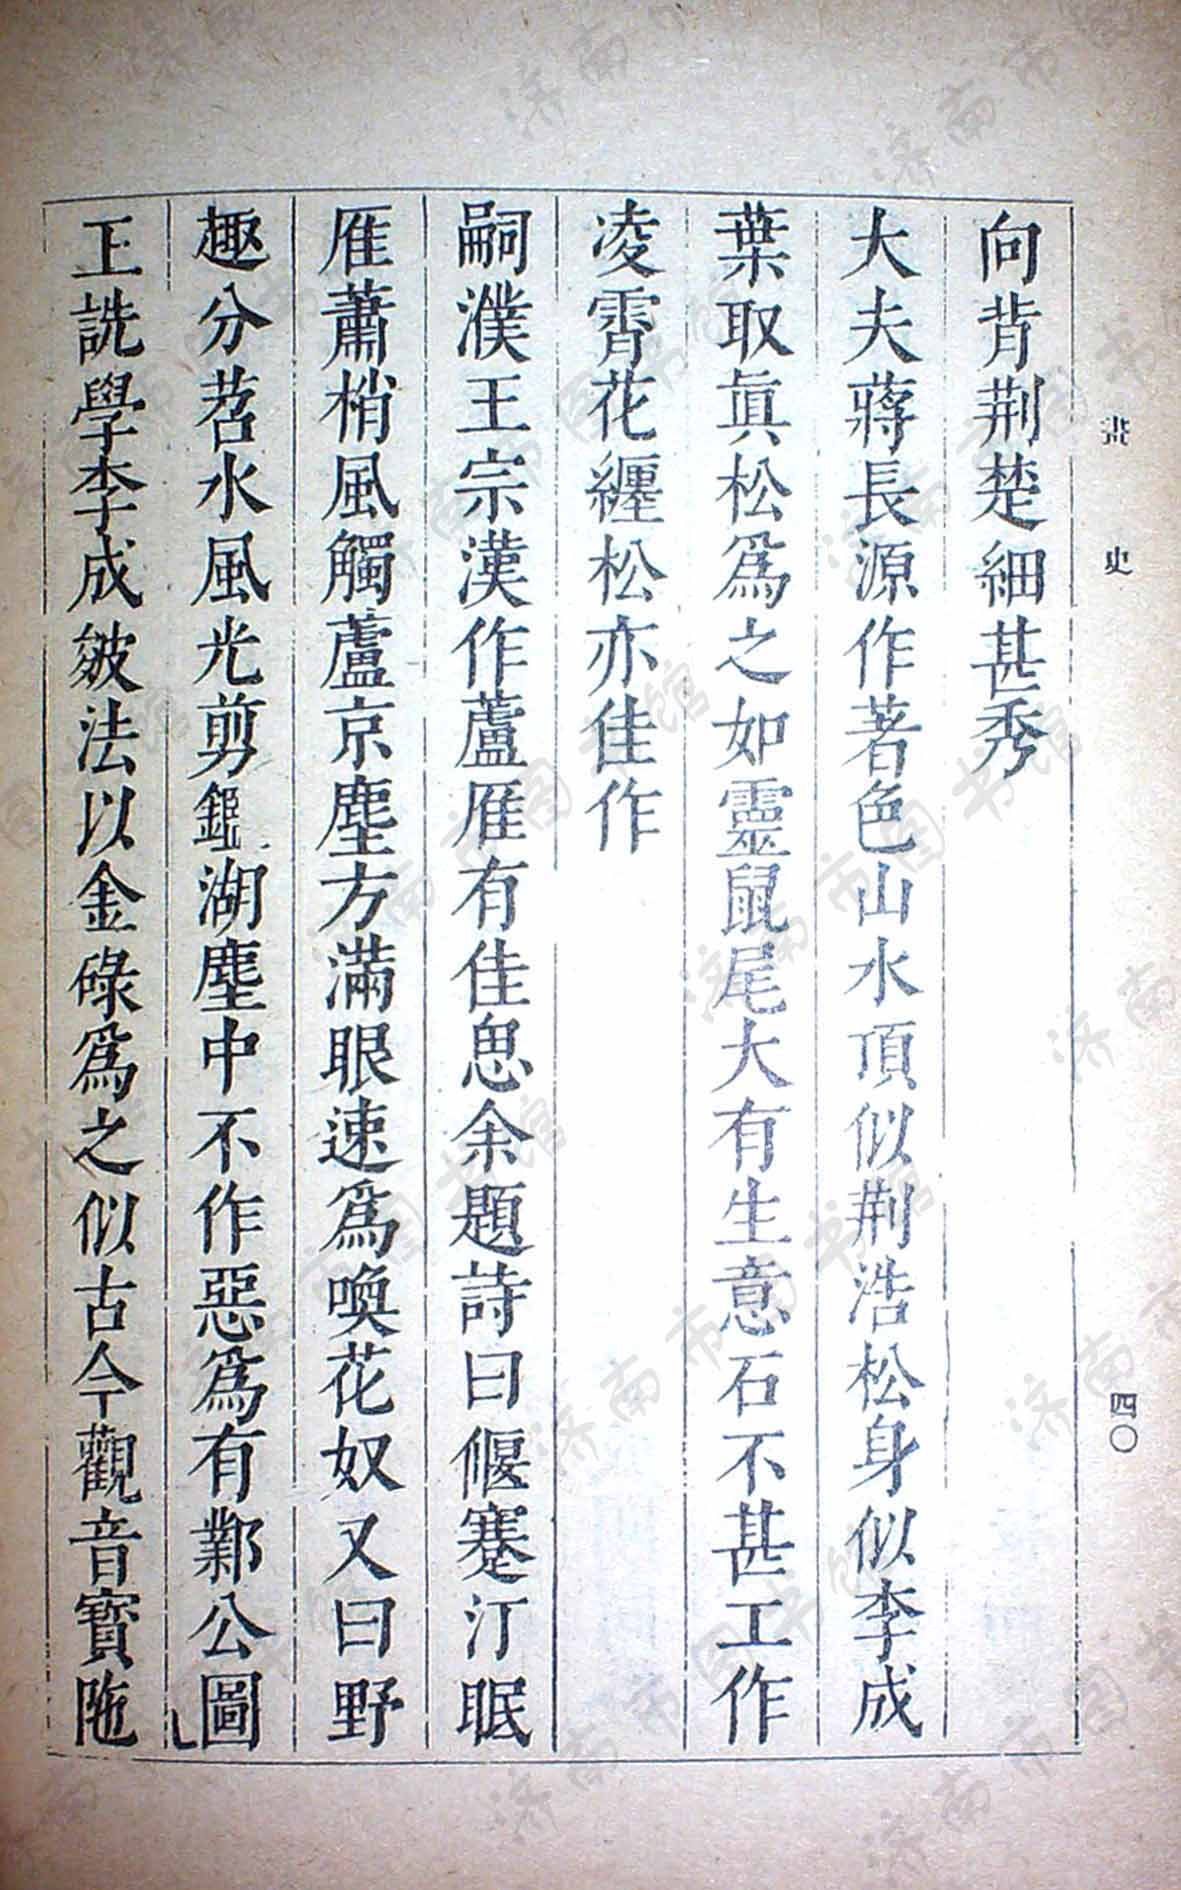 畫史
四〇
向背荆楚細甚秀
大夫蔣長源作著色山水頂似荆浩松身似李成
葉取眞松爲之如靈鼠尾大有生意石不甚工作
凌霄花纏松亦佳作
嗣濮王宗漢作蘆雁有佳思余題詩曰偃蹇汀眠
雁蕭梢風觸蘆京塵方滿眼速爲喚花奴又曰野
趣分苕水風光剪鑑湖塵中不作惡爲有鄴公圖
王詵學李成皴法以金碌爲之似古今觀音寶陁
济南市图书馆